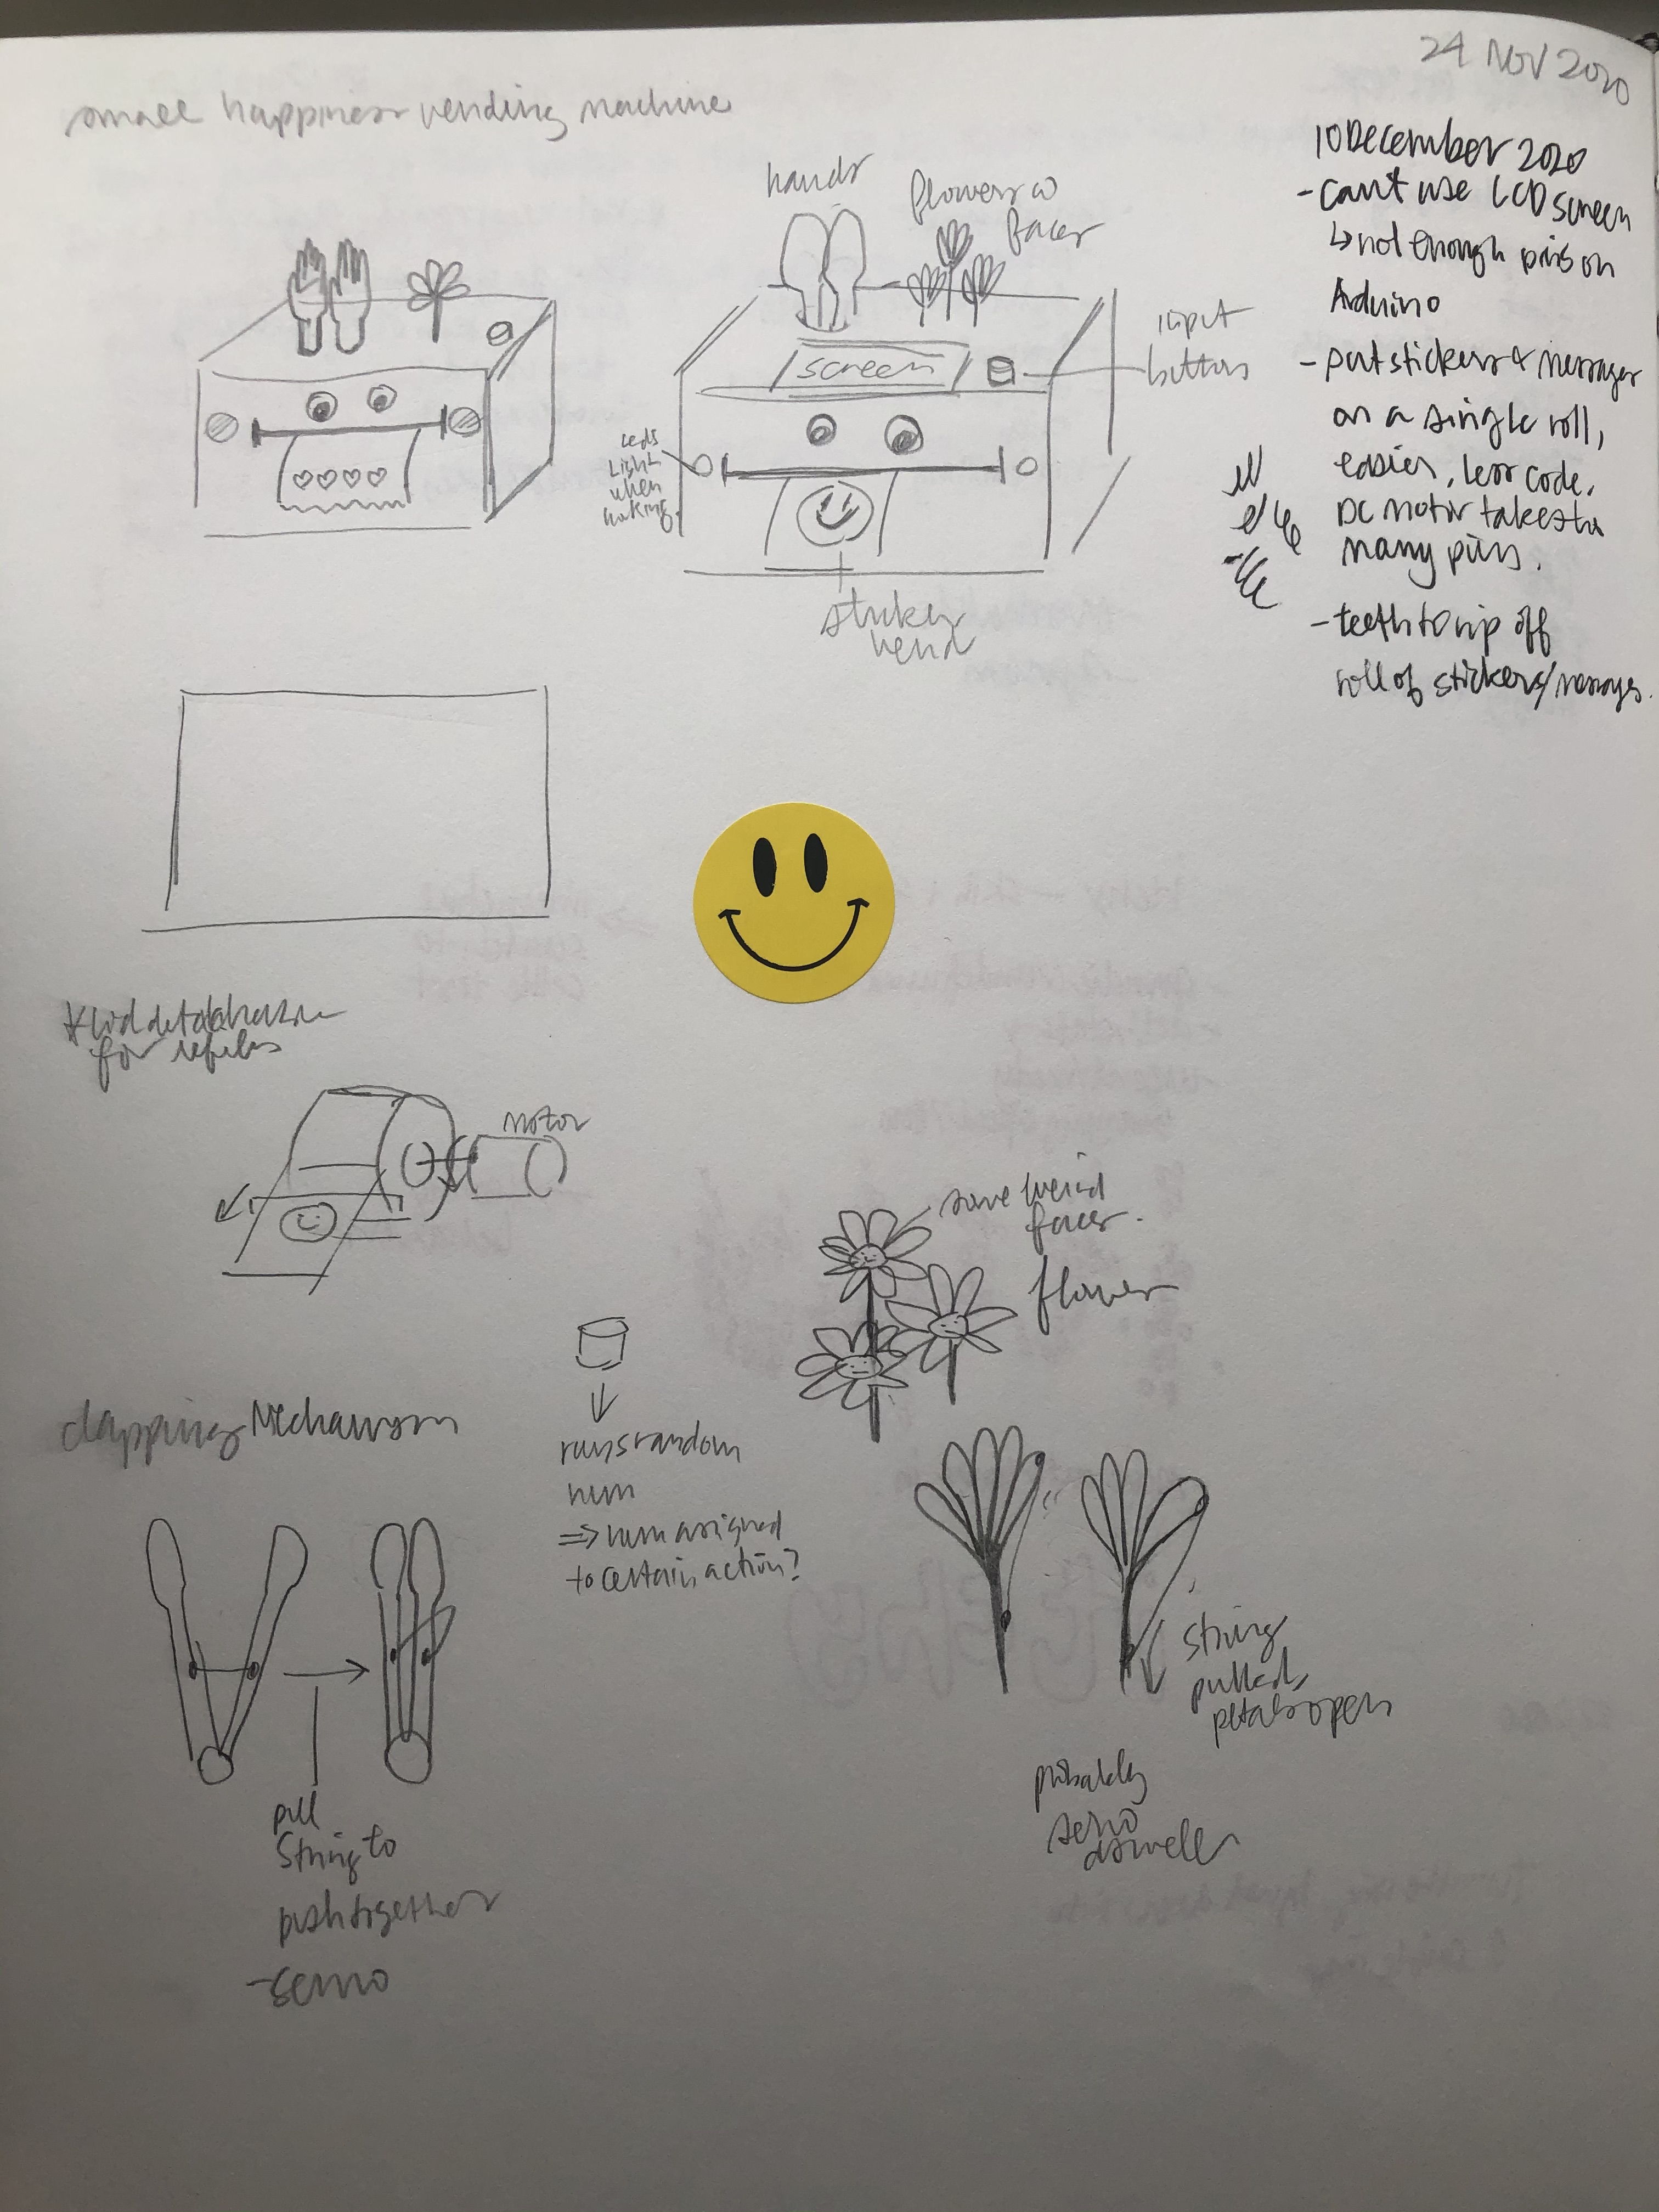 24 NOV 2020
small happiness vending machine
hands
flowers w
faces
screen
input
button
LEDs
light
when
making.
sticker
vend
10 December 2020
- can't use LCD screen
↳ not enough pins on
Arduino
- put stickers + messages
on a single roll,
easier, less code,
DC motor takes too
many pins.
- teeth to rip off
roll of stickers/messages.
for refills
motor
some weird
faces.
flower
clapping Mechanism
runs random
num
⇒ num assigned
to certain action?
pull
string to
push together
- servo
string
pulled,
petals open
probably
servo
as well